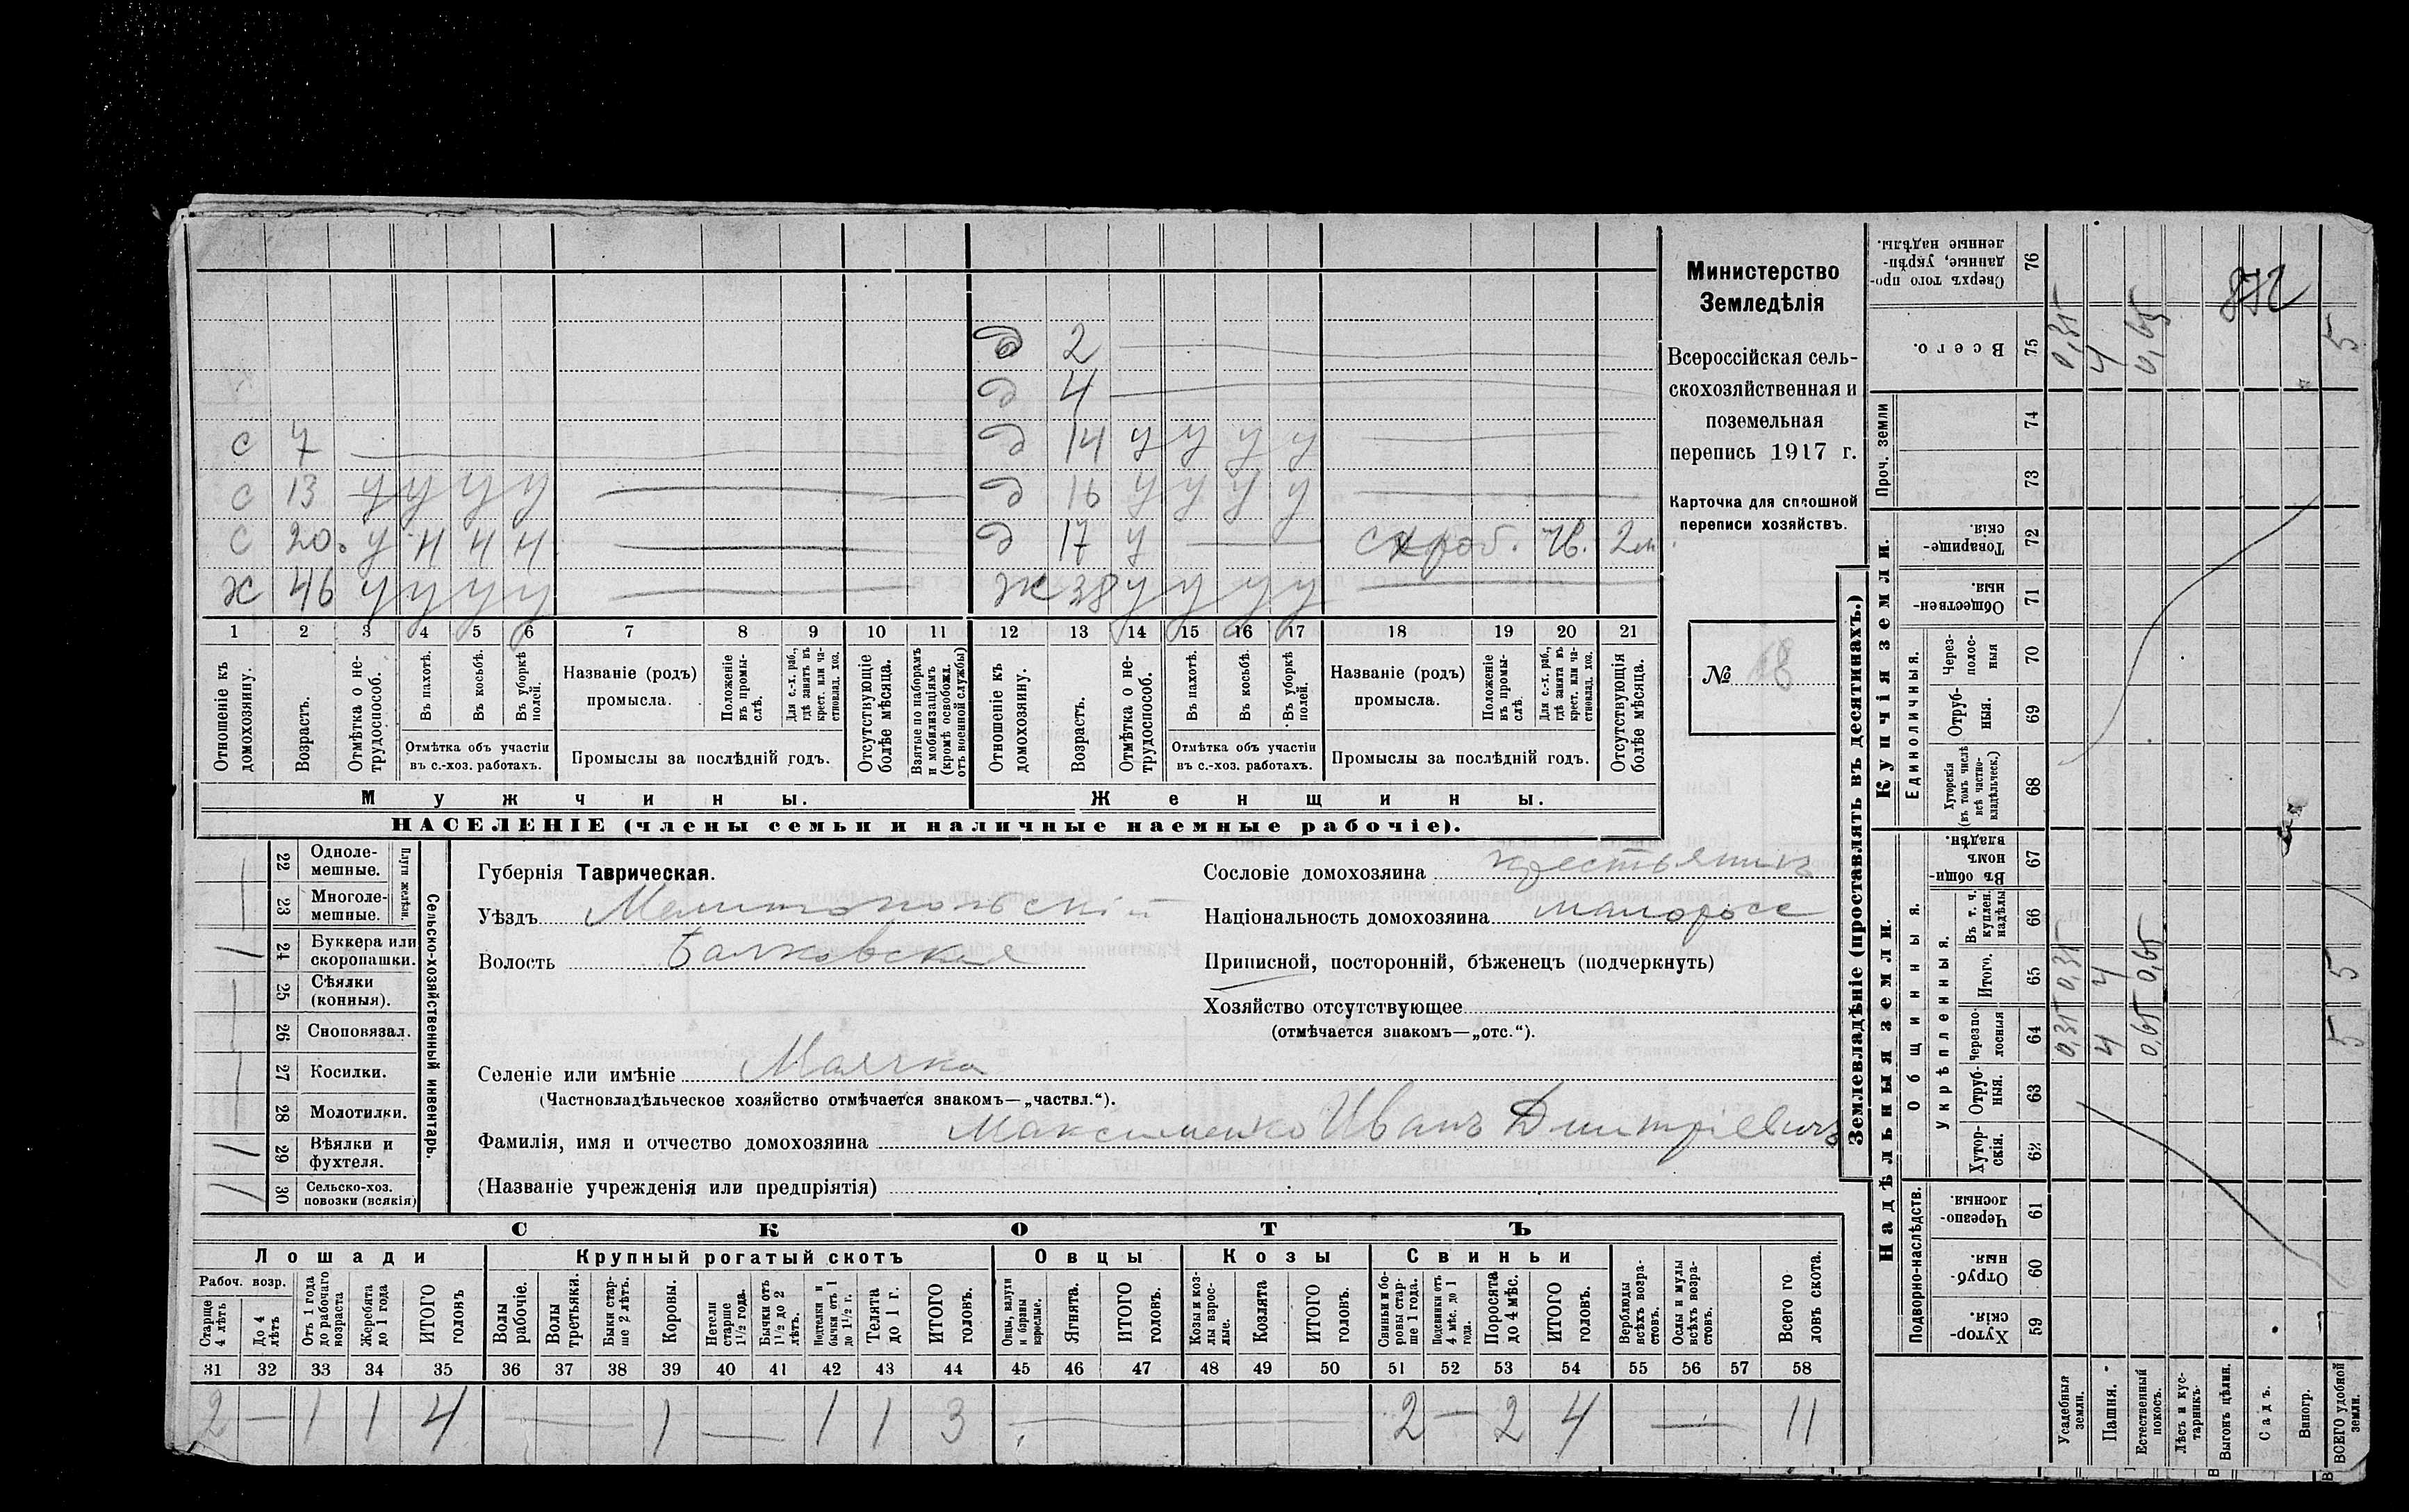 Министерство
Земледѣлія
Всероссійская сель-
скохозяйственная и
поземельная
перепись 1917 г.
Карточка для сплошной
переписи хозяйствъ.
№ 18
д 2
д 4
с 7 д 14 у у у у
с 13 у у у у д 16 у у у у
с 20 у н н н д 17 у 2 м
х 46 у у у у ж 38 у у у у
1 2 3 4 5 6 7 8 9 10 11 12 13 14 15 16 17 18 19 20 21
Отношеніе къ домохозяину.
Возрастъ.
Отмѣтка о не-трудоспособ.
Въ пахотѣ.
Въ косьбѣ.
Въ уборкѣ полей.
Отмѣтка объ участіи
въ с.-хоз. работахъ.
Названіе (родъ)
промысла.
Положеніе въ промы-слѣ.
Для с.-х. раб., гдѣ занятъ въ крест. или ча-стновлад. хоз.
Промыслы за послѣдній годъ.
Отсутствующіе болѣе мѣсяца.
Взятые по наборамъ и мобилизаціямъ (кромѣ освобожд. отъ военной службы)
Отношеніе къ домохозяину.
Возрастъ.
Отмѣтка о не-трудоспособ.
Въ пахотѣ.
Въ косьбѣ.
Въ уборкѣ полей.
Отмѣтка объ участіи
въ с.-хоз. работахъ.
Названіе (родъ)
промысла.
Положеніе въ промы-слѣ.
Для с.-х. раб., гдѣ занята въ крест. или ча-стновлад. хоз.
Промыслы за послѣдній годъ.
Отсутствующія болѣе мѣсяца.
Мужчины. Женщины.
НАСЕЛЕНІЕ (члены семьи и наличные наемные рабочіе).
Сельско-хозяйственный инвентарь.
Плуги желѣзн.
22 Одноле-мешные.
23 Многоле-мешные.
24 Буккера или скоропашки. 1
25 Сѣялки (конныя).
26 Сноповязал.
27 Косилки.
28 Молотилки.
29 Вѣялки и фухтеля. 1
30 Сельско-хоз. повозки (всякія) 1
Губернія Таврическая.
Уѣздъ Мелитопольскій
Волость Балковская
Селеніе или имѣніе Маячка
(Частновладѣльческое хозяйство отмѣчается знакомъ—„частвл.“).
Фамилія, имя и отчество домохозяина Максименко Иванъ Дмитріевичъ
(Названіе учрежденія или предпріятія)
Сословіе домохозяина крестьянинъ
Національность домохозяина малоросс
Приписной, посторонній, бѣженецъ (подчеркнуть)
Хозяйство отсутствующее
(отмѣчается знакомъ—„отс.“).
СКОТЪ
Лошади Крупный рогатый скотъ Овцы Козы Свиньи
Рабоч. возр.
Старше 4 лѣтъ
До 4 лѣтъ
Отъ 1 года до рабочаго возраста
Жеребята до 1 года
ИТОГО головъ
Волы рабочіе.
Волы третьяки.
Быки стар-ше 2 лѣтъ.
Коровы.
Нетели старше 1½ года.
Бычки отъ 1½ до 2 лѣтъ.
Подтелки и бычки отъ 1 до 1½ г.
Телята до 1 г.
ИТОГО головъ.
Овцы, валухи и бараны взрослые.
Ягнята.
ИТОГО головъ.
Козы и коз-лы взрос-лые.
Козлята
ИТОГО головъ.
Свиньи и бо-ровы стар-ше 1 года.
Подсвинки отъ 4 мѣс. до 1 года.
Поросята до 4 мѣс.
ИТОГО головъ.
Верблюды всѣхъ возра-стовъ.
Ослы и мулы всѣхъ возра-стовъ.
Всего го-ловъ скота.
31 32 33 34 35 36 37 38 39 40 41 42 43 44 45 46 47 48 49 50 51 52 53 54 55 56 57 58
2 — 1 1 4 — 1 — 1 1 3 — 2 — 2 4 — 11
Землевладѣніе (проставлять въ десятинахъ.)
Надѣльныя земли.
Купчія земли.
Проч. земли
Подворно-наслѣдств.
Общинныя.
Укрѣпленныя.
Единоличныя.
59 Хутор-скія.
60 Отруб-ныя.
61 Черезпо-лосныя.
62 Хутор-скія.
63 Отруб-ныя.
64 Черезпо-лосныя 0,35 4 0,65 5
65 Итого. 0,35 4 0,65 5
66 Въ т. ч. куплен. надѣлы
67 Въ общин-номъ владѣн.
68 Хуторскія (въ томъ числѣ всѣ частно-владѣльческ.)
69 Отруб-ныя.
70 Через-полос-ныя
71 Обществен-ныя.
72 Товарище-скія.
73
74
75 Всего. 0,35 4 0,65 5
76 Сверхъ того про-данные, укрѣп-ленные надѣлы.
Усадебныя земли.
Пашня.
Естественный покосъ.
Лѣсъ и кус-тарникъ.
Выгонъ цѣлин.
Садъ.
Виногр.
ВСЕГО удобной земли.